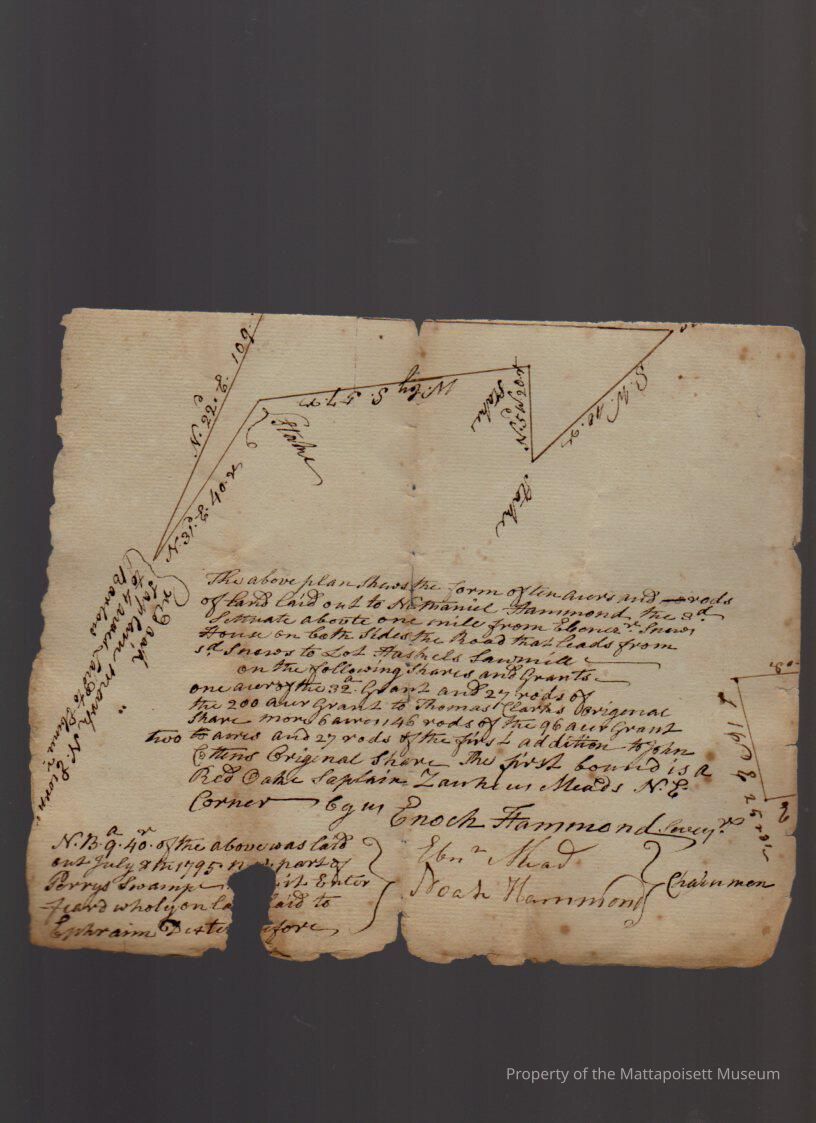 N. 22.d E 106
N. 31. E. 40. r
Stake
W. 6.y S. 57. r
Stake
N. 5 W 20 r
S. W. 40. r
Stake
R Oak
Saplain mark N. E Corner
to 4 acres Laid to Ebenr.
Barlow
The above plan shews the form of ten acers and rods
of land laid out to Nathaniel Hammond the 3d
Situate aboute one mile from Ebenezr. Snows
House on both Sides the Road that leads from
sd. Snows to Lot Haskels Sawmill
on the following Shares and Grants
one acer of the 32.a Grant and 27 rods of
the 200 acer Grant to Thomas Clarks Origenal
Share more 6 acres 146 rods of the 96 acer Grant
two to acres and 27 rods of the first addition to John
Cottens Original Share The first bound is a
Red Oake Saplain Zacheus Meads N. E
Corner
Enoch Hammond Survyr.
Ebnr Mead
Noah Hammond
Chainmen
N. B. 9.a 40.r of the above was laid
out July 8th 1795 part of
Perrys Swamp Enter
feard wholy on laid to
Ephraim before
Property of the Mattapoisett Museum